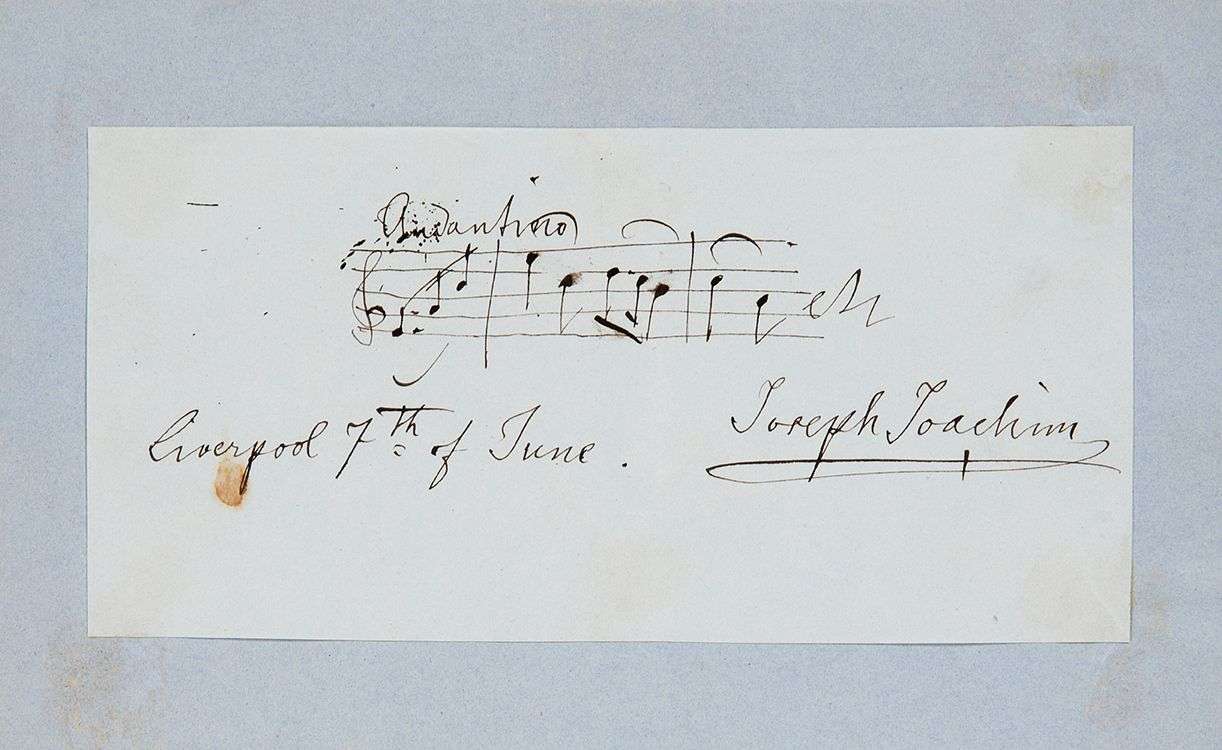 Andantino
etc
Liverpool 7th of June.
Joseph Joachim